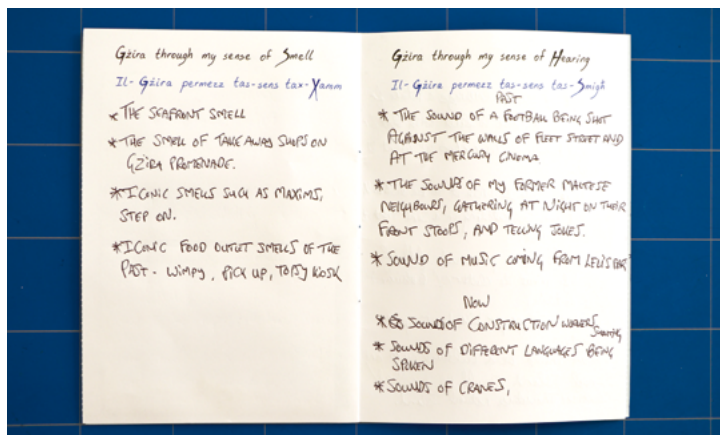 Gżira through my sense of Smell
Il-Gżira permezz tas-sens tax-Xamm
* THE SEAFRONT SMELL
* THE SMELL OF TAKE AWAY SHOPS ON
GŻIRA PROMENADE.
* ICONIC SMELLS SUCH AS MAXIMS,
STEP ON.
* ICONIC FOOD OUTLET SMELLS OF THE
PAST - WIMPY, PICK UP, TOPSY KIOSK
Gżira through my sense of Hearing
Il-Gżira permezz tas-sens tas-Smigħ
PAST
* THE SOUND OF A FOOTBALL BEING SHOT
AGAINST THE WALLS OF FLEET STREET AND
AT THE MERCURY CINEMA
* THE SOUNDS OF MY FORMER MALTESE
NEIGHBOURS, GATHERING AT NIGHT ON THEIR
FRONT STOOPS, AND TELLING JOKES.
* SOUND OF MUSIC COMING FROM LELI'S BAR
NOW
* SOUNDS OF CONSTRUCTION WORKERS
* SOUNDS OF DIFFERENT LANGUAGES BEING
SPOKEN
* SOUNDS OF CRANES,